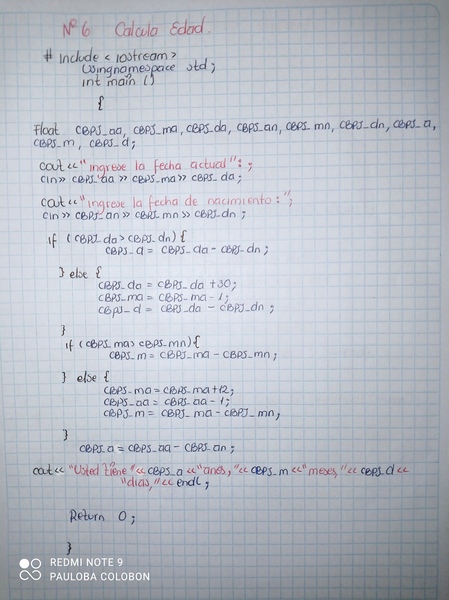 Nº 6 Calcula Edad
# Include < iostream >
Usingnamespace std;
int main ()
{
Float CBPS_aa, CBPS_ma, CBPS_da, CBPS_an, CBPS_mn, CBPS_dn, CBPS_a,
CBPS_m, CBPS_d;
cout<<"ingrese la fecha actual":;
cin>> CBPS_aa >> CBPS_ma>> CBPS_da;
cout<<"ingrese la fecha de nacimiento:";
cin>> CBPS_an >> CBPS_mn >> CBPS_dn;
if (CBPS_da > CBPS_dn) {
CBPS_d = CBPS_da - CBPS_dn;
} else {
CBPS_da = CBPS_da +30;
CBPS_ma = CBPS_ma - 1;
CBPS_d = CBPS_da - CBPS_dn;
}
if (CBPS_ma > CBPS_mn) {
CBPS_m = CBPS_ma - CBPS_mn;
} else {
CBPS_ma = CBPS_ma+12;
CBPS_aa = CBPS_aa - 1;
CBPS_m = CBPS_ma - CBPS_mn;
}
CBPS_a = CBPS_aa - CBPS_an;
cout<< "Usted tiene "<< CBPS_a <<"años, "<< CBPS_m <<"meses, "<< CBPS_d <<
"dias, "<< endl;
Return 0;
}
REDMI NOTE 9
PAULOBA COLOBON